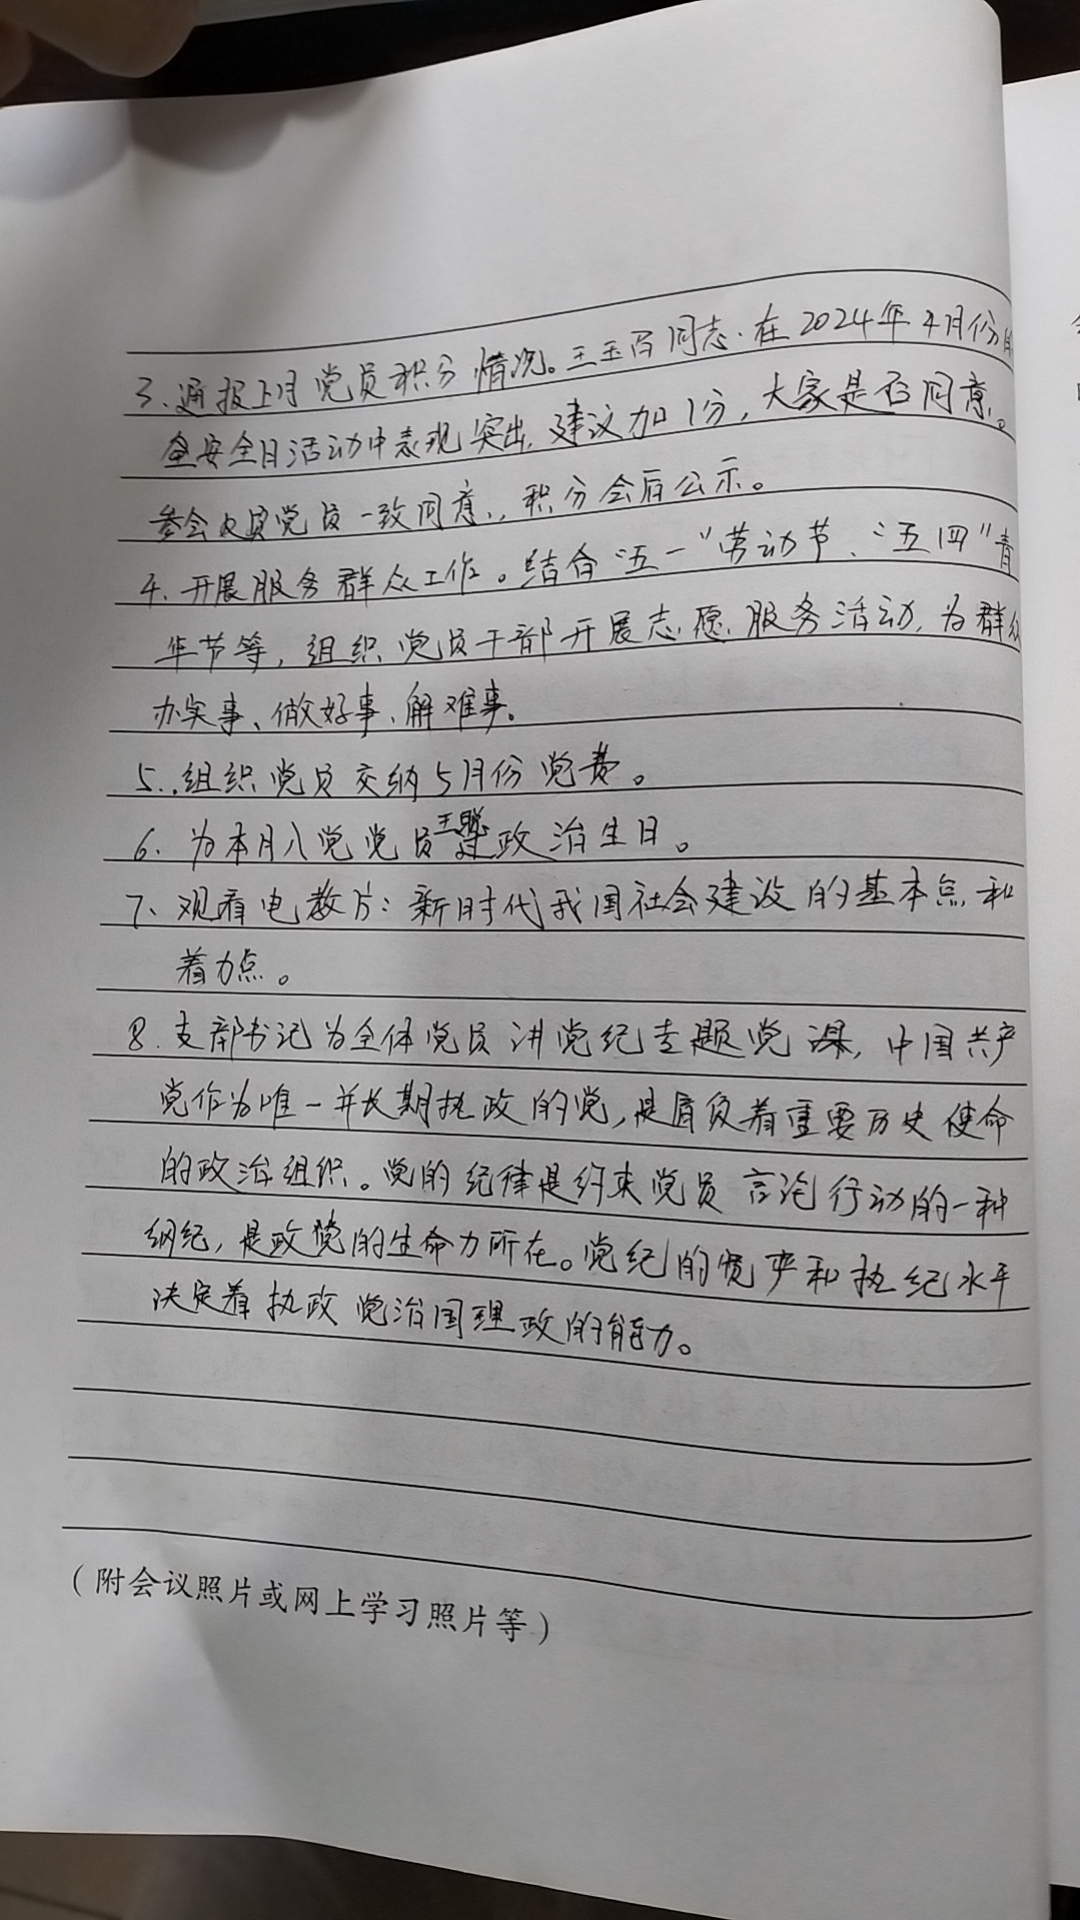 3.通报上月党员积分情况。王玉同志.在2024年4月份的
安全日活动中表现突出,建议加1分,大家是否同意。
参会党员一致同意,积分会后公示。
4.开展服务群众工作。结合"五一"劳动节、"五四"青
年节等,组织党员干部开展志愿服务活动,为群众
办实事、做好事、解难事。
5.组织党员交纳5月份党费。
6.为本月入党党员王聪过政治生日。
7、观看电教片:新时代我国社会建设的基本点和
着力点。
8.支部书记为全体党员讲党纪专题党课,中国共产
党作为唯一并长期执政的党,是肩负着重要历史使命
的政治组织。党的纪律是约束党员言论行动的一种
纲纪,是政党的生命力所在。党纪的宽严和执纪水平
决定着执政党治国理政的能力。
(附会议照片或网上学习照片等)